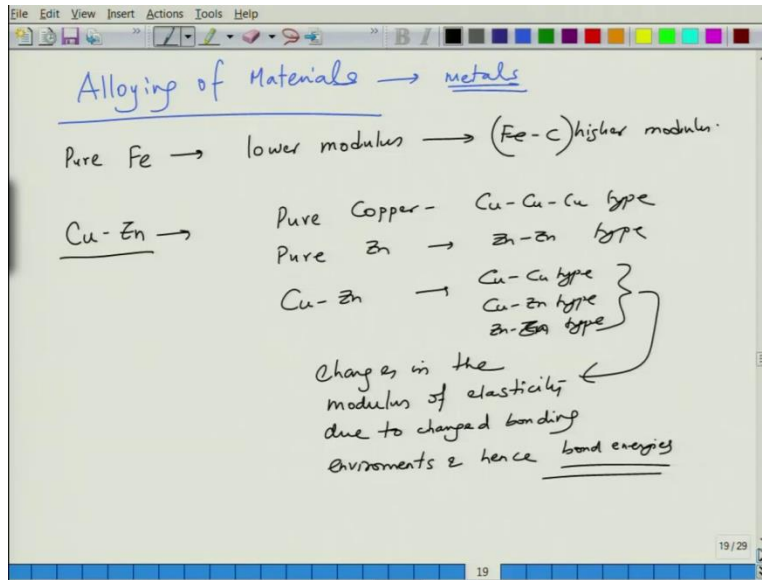 File Edit View Insert Actions Tools Help
Alloying of Materials → metals
Pure Fe → lower modulus → (Fe-C) higher modulus.
Cu-Zn → Pure Copper - Cu-Cu-Cu type
Pure Zn → Zn-Zn type
Cu-Zn → Cu-Cu type
Cu-Zn type
Zn-Zn type
Changes in the
modulus of elasticity
due to changed bonding
enviroments & hence bond energies
19/29
19